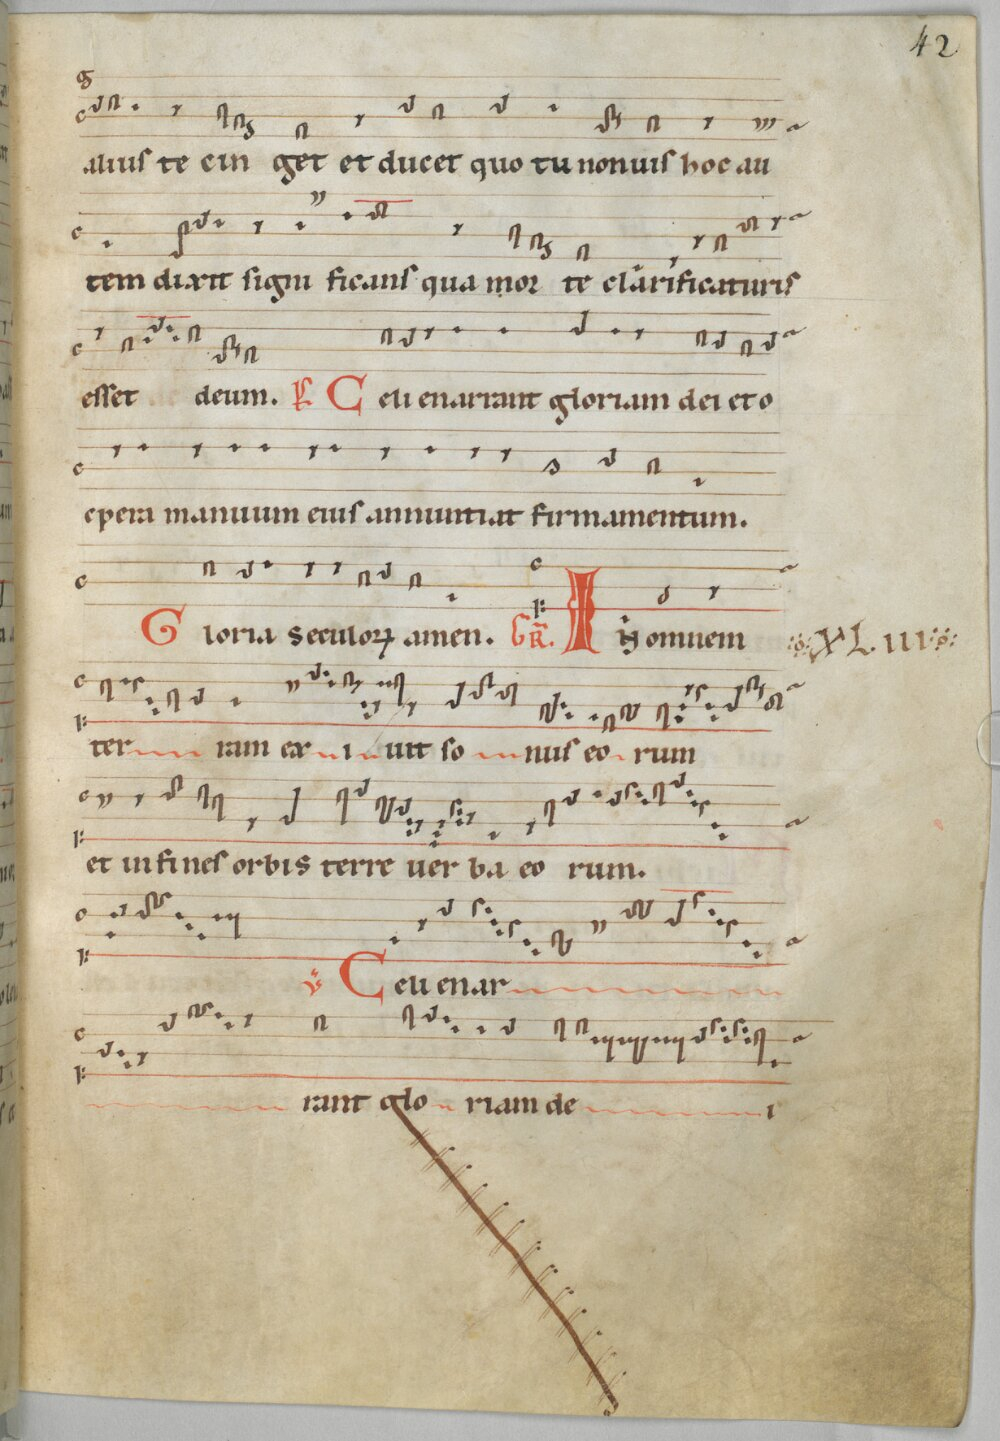 42
alius te cin get et ducet quo tu non uis hoc au
tem dixit signi ficans qua mor te clarificaturus
esset deum. Celi enarrant gloriam dei et o
opera manuum eius annuntiat firmamentum.
Gloria seculorꝝ amen. GR̃. In omnem
XLIII
ter ram ex i uit so nus eo rum
et in fines orbis terre uer ba eo rum.
v̄ Celi enar
rant glo riam de i